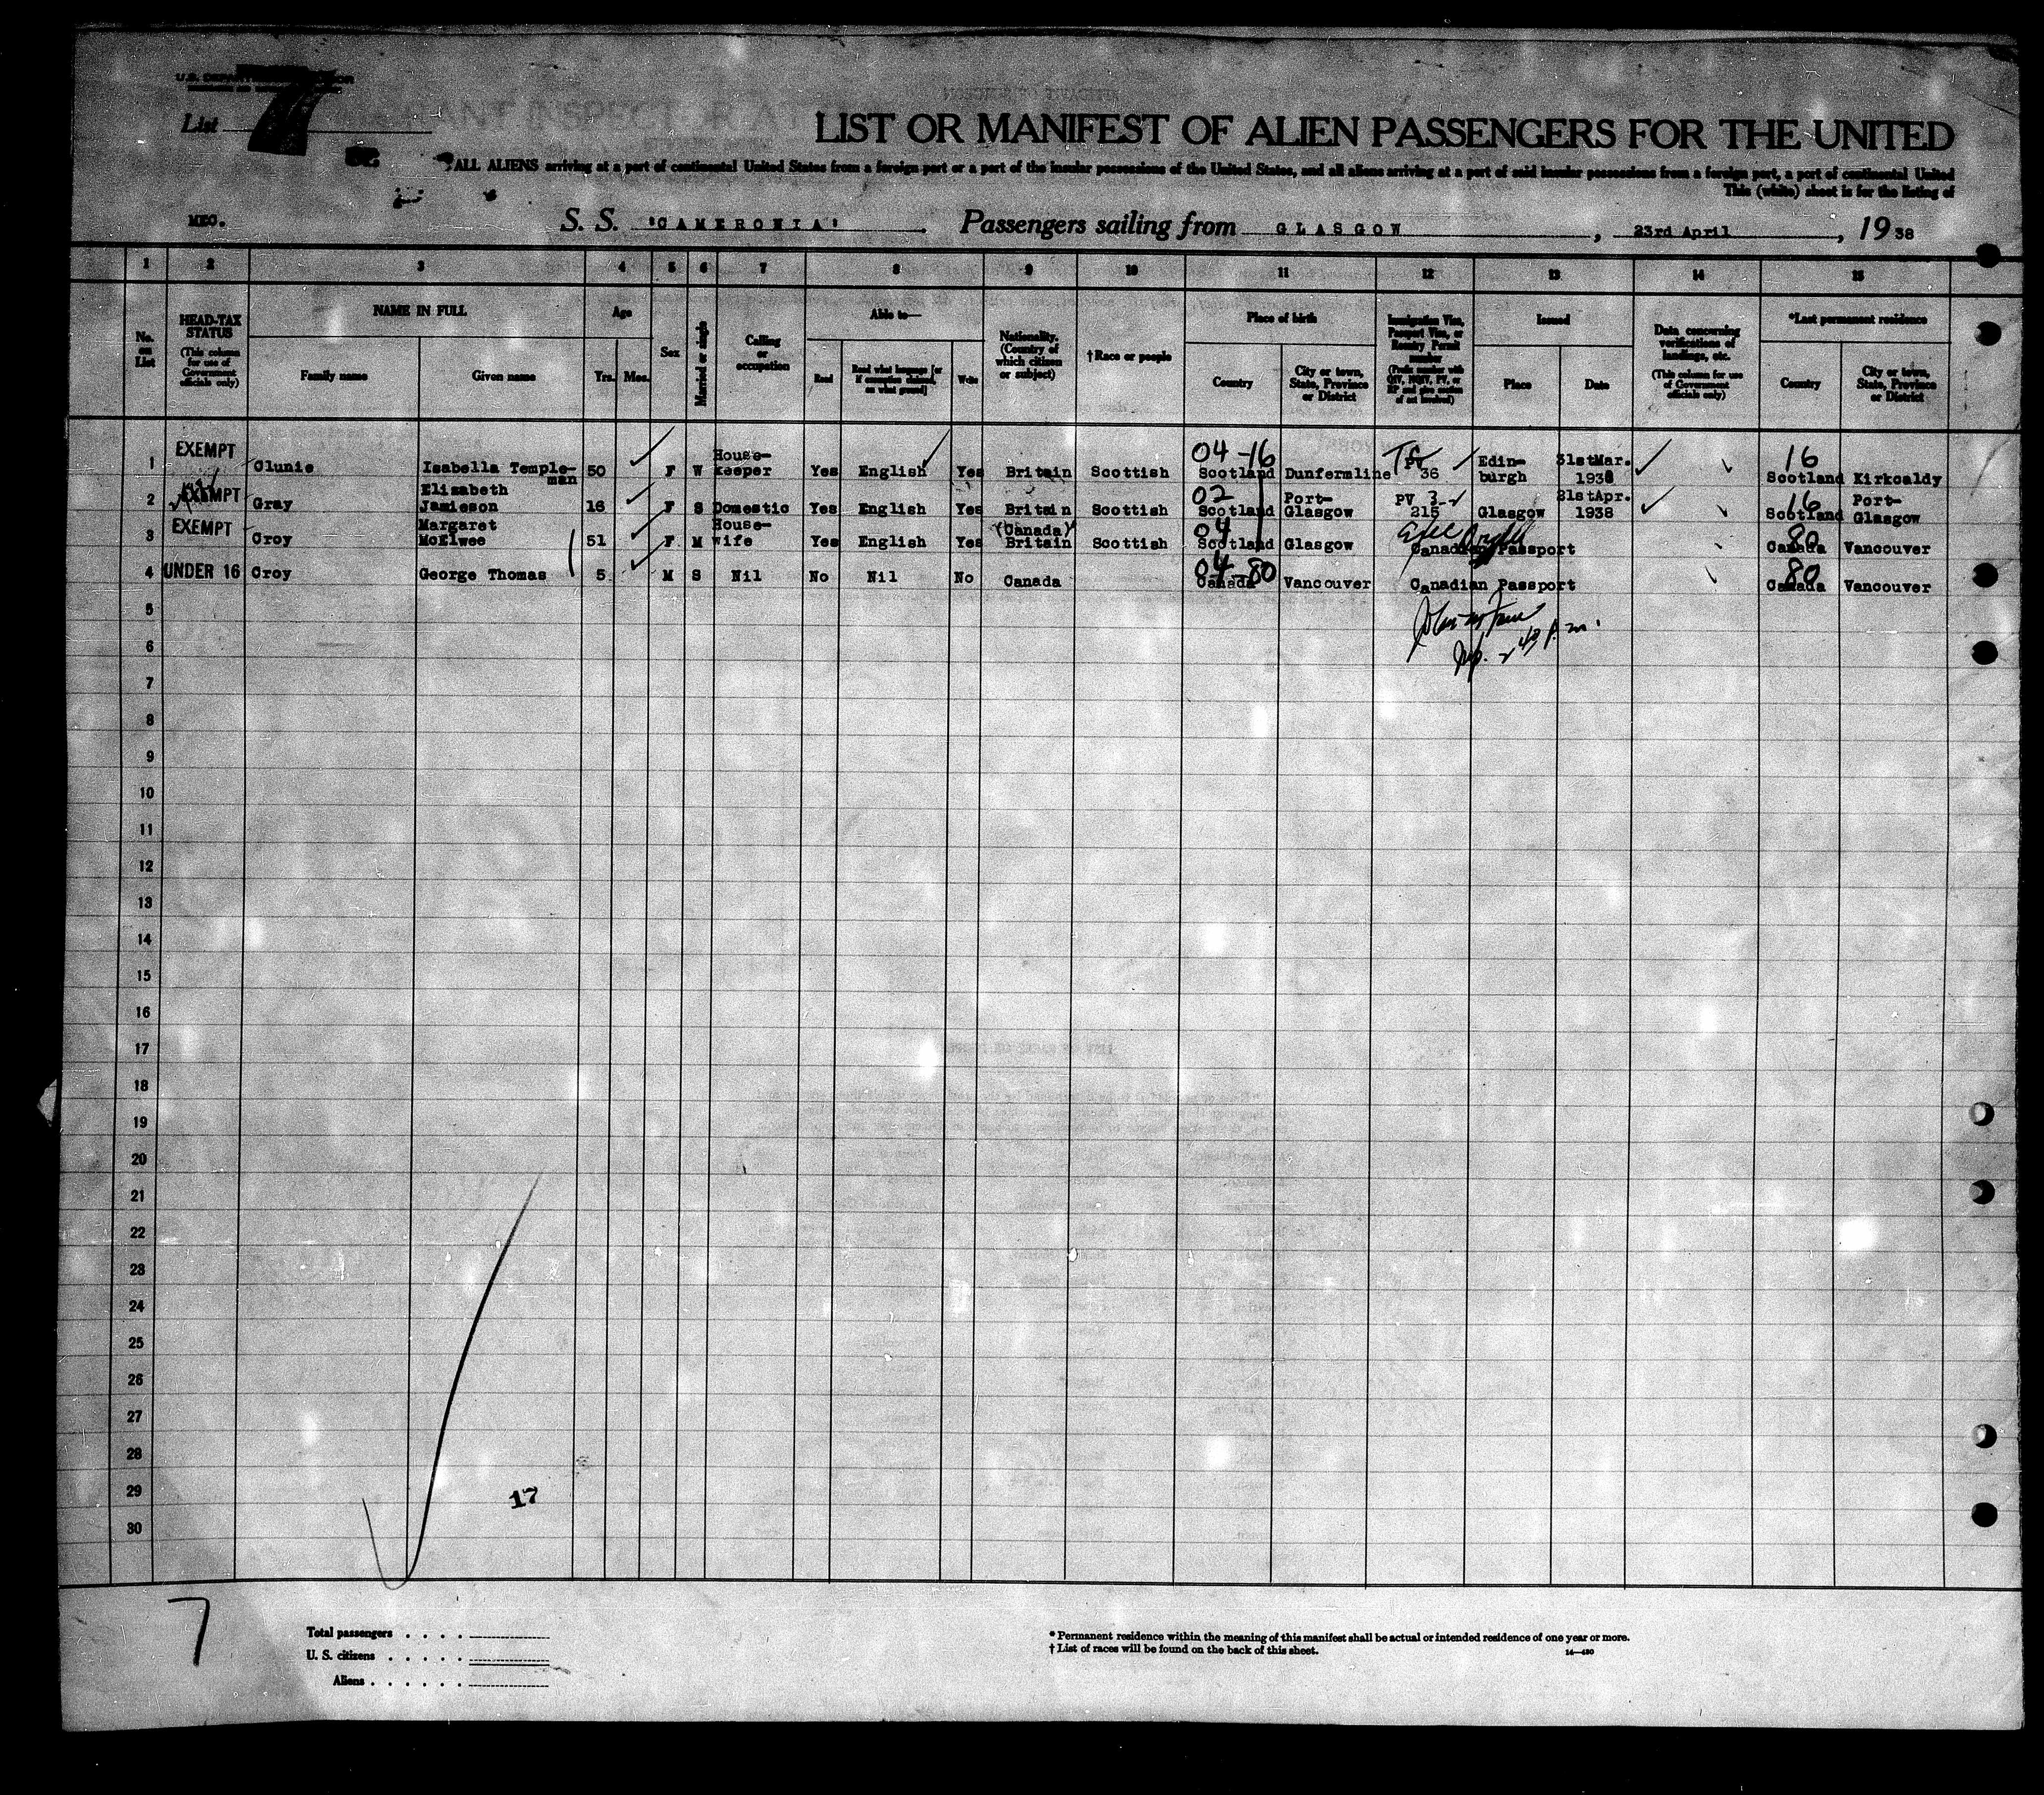 List 7
LIST OR MANIFEST OF ALIEN PASSENGERS FOR THE UNITED
ALL ALIENS arriving at a port of continental United States from a foreign port or a port of the insular possessions of the United States, and all aliens arriving at a port of said insular possessions from a foreign port, a port of continental United
This (white) sheet is for the listing of
MEC. S. S. "CAMERONIA" Passengers sailing from GLASGOW, 23rd April, 1938
1 2 3 4 5 6 7 8 9 10 11 12 13 14 15
No. on List
HEAD-TAX STATUS (This column for use of Government officials only)
NAME IN FULL
Family name Given name
Age
Yrs. Mos.
Sex
Married or single
Calling or occupation
Able to—
Read Read what language [or if exemption claimed, on what ground] Write
Nationality. (Country of which citizen or subject)
†Race or people
Place of birth
Country City or town, State, Province or District
Immigration Visa, Passport Visa, or Reentry Permit number
(Prefix number with QIV, NQIV, PV, or RP and give section of act involved)
Issued
Place Date
Data concerning verifications of landings, etc.
(This column for use of Government officials only)
*Last permanent residence
Country City or town, State, Province or District
1 EXEMPT Clunie Isabella Temple-man 50 F W House-keeper Yes English Yes Britain Scottish 04-16 Scotland Dunfermline 36 Edin-burgh 31stMar. 1938 16 Scotland Kirkcaldy
2 EXEMPT Gray Elizabeth Jamieson 16 F S Domestic Yes English Yes Britain Scottish 02 Scotland Port-Glasgow PV 3-2 215 Glasgow 21stApr. 1938 16 Scotland Port-Glasgow
3 EXEMPT Croy Margaret McElwee 51 F M House-wife Yes English Yes (Canada) Britain Scottish 04 Scotland Glasgow Canadian Passport 80 Canada Vancouver
4 UNDER 16 Croy George Thomas 5 M S Nil No Nil No Canada 04-80 Canada Vancouver Canadian Passport 80 Canada Vancouver
5
6
7
8
9
10
11
12
13
14
15
16
17
18
19
20
21
22
23
24
25
26
27
28
29
30
17
7
Total passengers . . . .
U. S. citizens . . . . .
Aliens . . . . . .
* Permanent residence within the meaning of this manifest shall be actual or intended residence of one year or more.
† List of races will be found on the back of this sheet.
14—430